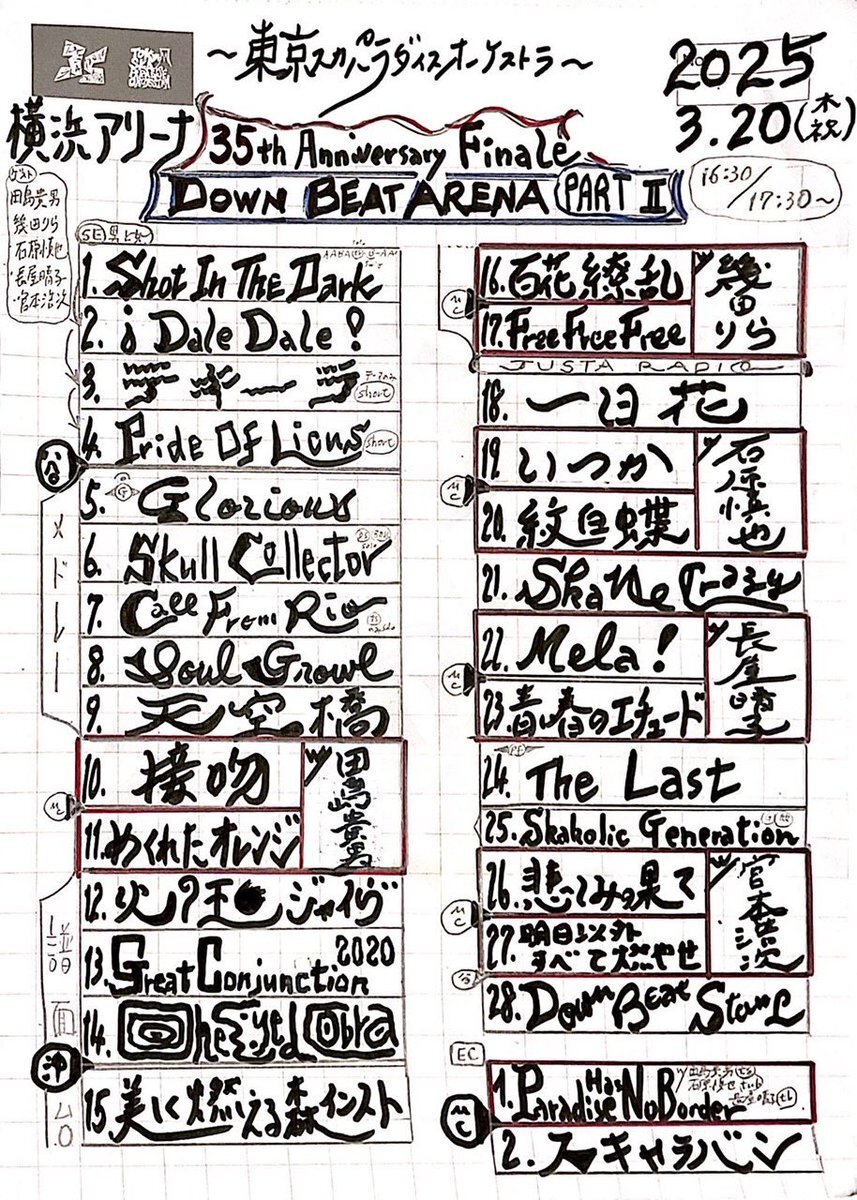 TOKYO SKA PARADISE ORCHESTRA
〜東京スカパラダイスオーケストラ〜
2025
3.20(木祝)
横浜アリーナ
35th Anniversary Finale
DOWN BEAT ARENA PART II
16:30/17:30〜
ゲスト
田島貴男
幾田りら
石原慎也
長屋晴子
宮本浩次
SE
1. Shot In The Dark
2. ¡Dale Dale!
3. テキーラ
short
4. Pride Of Lions
short
谷
メドレー
5. Glorious
6. Skull Collector
7. Call From Rio
8. Soul Growl
9. 天空橋
10. 接吻
11. めくれたオレンジ
w/田島貴男
MC
12. 火の玉ジャイヴ
13. Great Conjunction 2020
14. One Eyed Cobra
15. 美しく燃える森 インスト
譜面
沖
16. 百花繚乱
17. Free Free Free
w/幾田りら
MC
JUSTA RADIO
18. 一日花
19. いつか
20. 紋白蝶
w/石原慎也
MC
21. Ska Me Crazy
22. Mela!
23. 青い春のエチュード
w/長屋晴子
MC
24. The Last
25. Skaholic Generation
26. 悲しみの果て
27. 明日以外すべて燃やせ
w/宮本浩次
MC
谷
28. Down Beat Stomp
EC
1. Paradise Has No Border
MC
2. スキャラバン